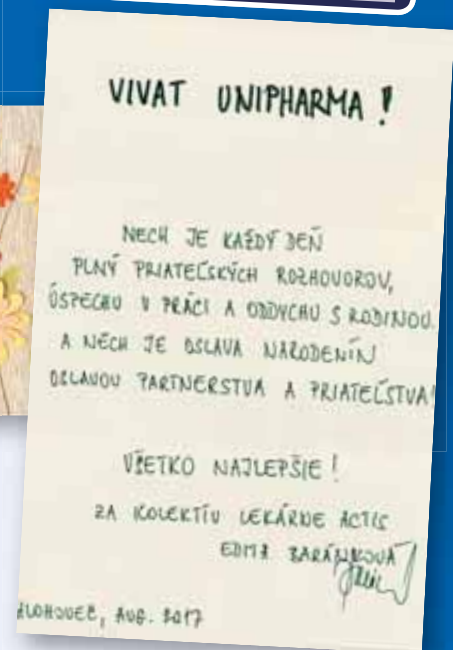 VIVAT UNIPHARMA!
NECH JE KAŽDÝ DEŇ
PLNÝ PRIATEĽSKÝCH ROZHOVOROV,
ÚSPECHU V PRÁCI A ODDYCHU S RODINOU.
A NECH JE OSLAVA NARODENÍN
OSLAVOU PARTNERSTVA A PRIATEĽSTVA!
VŠETKO NAJLEPŠIE!
ZA KOLEKTÍV LEKÁRNE ACTIS
BARÁNKOVÁ
HLOHOVEC, AUG. 2017